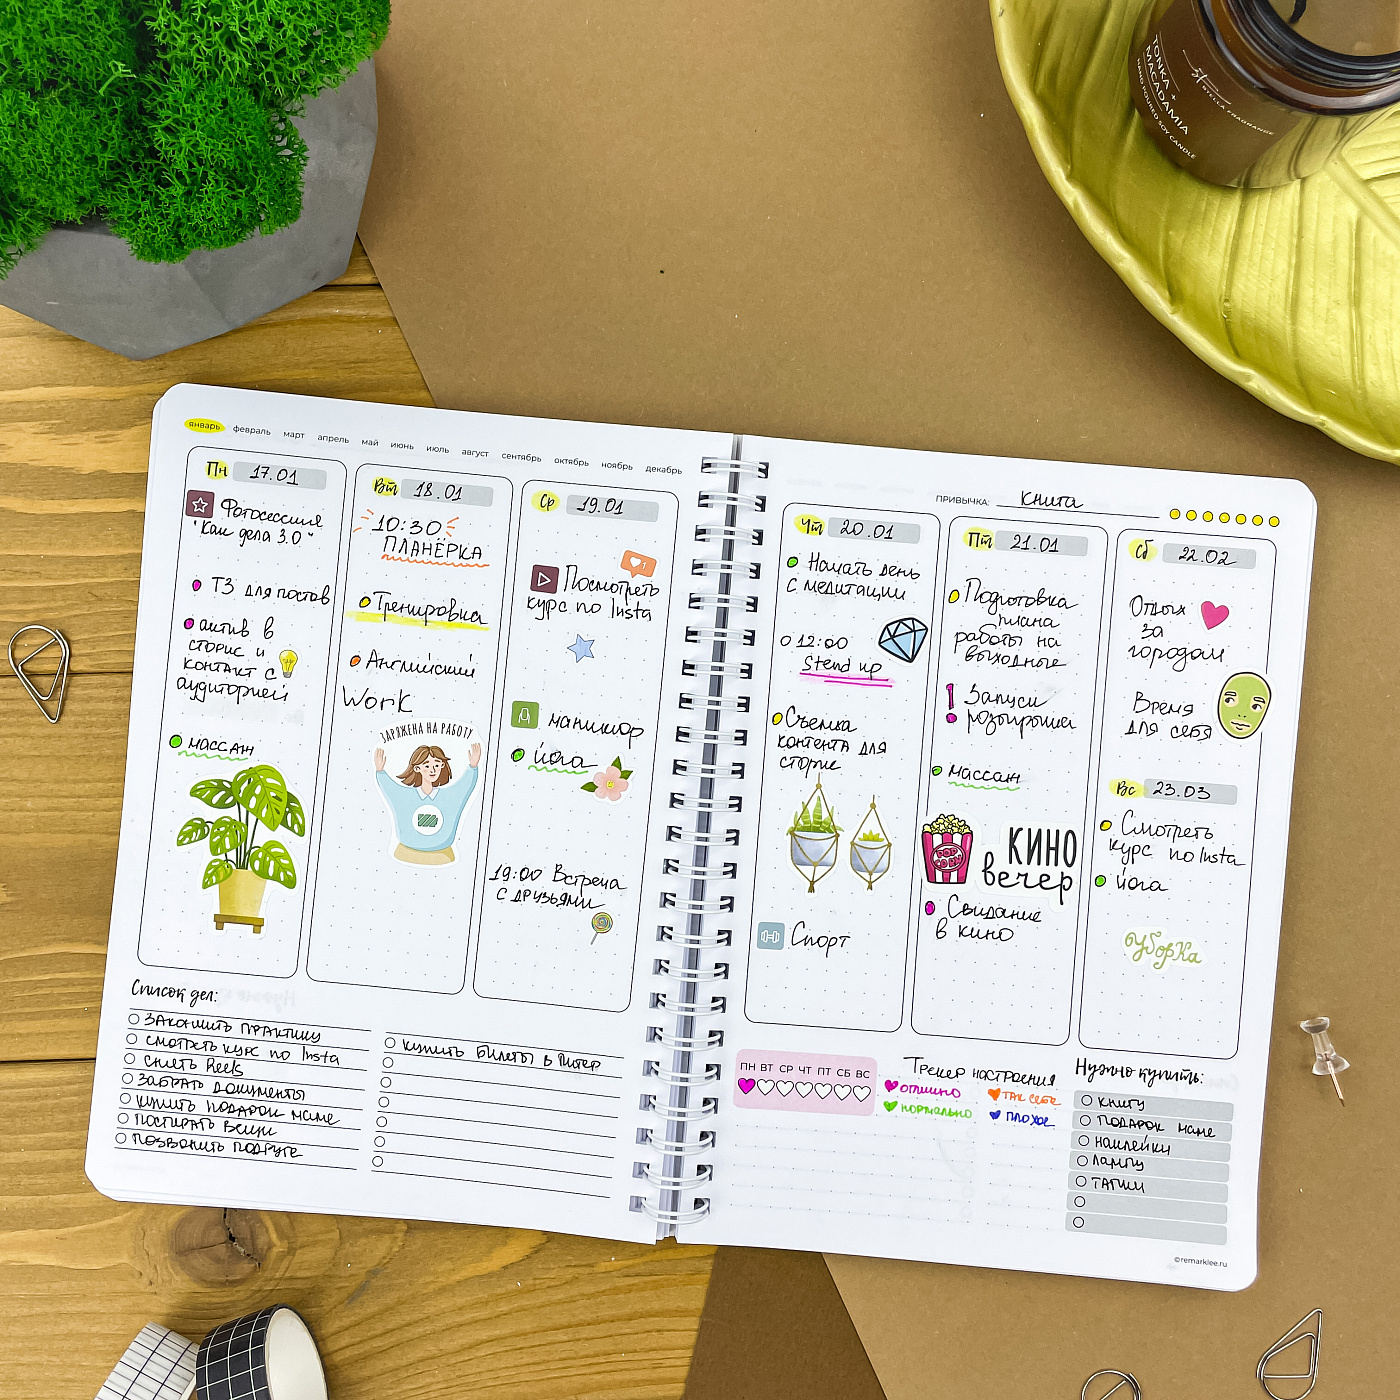 TONKA +
MACADAMIA
HAND POURED SOY CANDLE
STELLA FRAGRANCE
январь февраль март апрель май июнь июль август сентябрь октябрь ноябрь декабрь
Пн 17.01
Фотосессия
"Как дела 3.0"
ТЗ для постов
актив в
сторис и
контакт с
аудиторией
массаж
Вт 18.01
10:30
ПЛАНЁРКА
Тренировка
Английский
Work
ЗАРЯЖЕНА НА РАБОТУ
Ср 19.01
1
Посмотреть
курс по Insta
маникюр
йога
19:00 Встреча
с друзьями
Список дел:
Закончить практику
смотреть курс по Insta
снять Reels
Забрать документы
купить подарок маме
Постирать вещи
Позвонить подруге
купить билеты в Питер
ПРИВЫЧКА: книга
Чт 20.01
Начать день
с медитации
12:00
Stend up
Съемка
контента для
сторис
Спорт
Пт 21.01
Подготовка
плана
работы на
выходные
Записи
розыгрыша
массаж
POP CORN
КИНО
вечер
Свидание
в кино
Сб 22.02
Отдых
за
городом
Время
для себя
Вс 23.03
Смотреть
курс по Insta
йога
уборка
ПН ВТ СР ЧТ ПТ СБ ВС
Трекер настроения
отлично
так себе
нормально
плохое
Нужно купить:
книгу
подарок маме
наклейки
лампу
тапки
©remarklee.ru